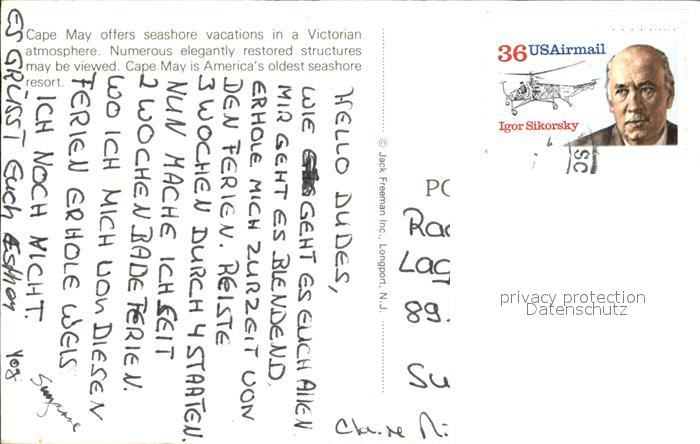 Cape May offers seashore vacations in a Victorian
atmosphere. Numerous elegantly restored structures
may be viewed. Cape May is America's oldest seashore
resort.
HELLO DUDES,
WIE GEHT ES EUCH ALLEN.
MIR GEHT ES BLENDEND,
ERHOLE MICH ZURZEIT VON
DEN FERIEN. REISTE
3 WOCHEN DURCH 4 STAATEN.
NUN MACHE ICH SEIT
2 WOCHEN BADEFERIEN.
WO ICH MICH VON DIESEN
FERIEN ERHOLE WEIS
ICH NOCH NICHT.
ES GRÜSST EUCH
Yogi
Suzanne
Claire
© Jack Freeman Inc., Longport, N.J.
36 USAirmail
Igor Sikorsky
PO
Lag
89
Su
privacy protection
Datenschutz